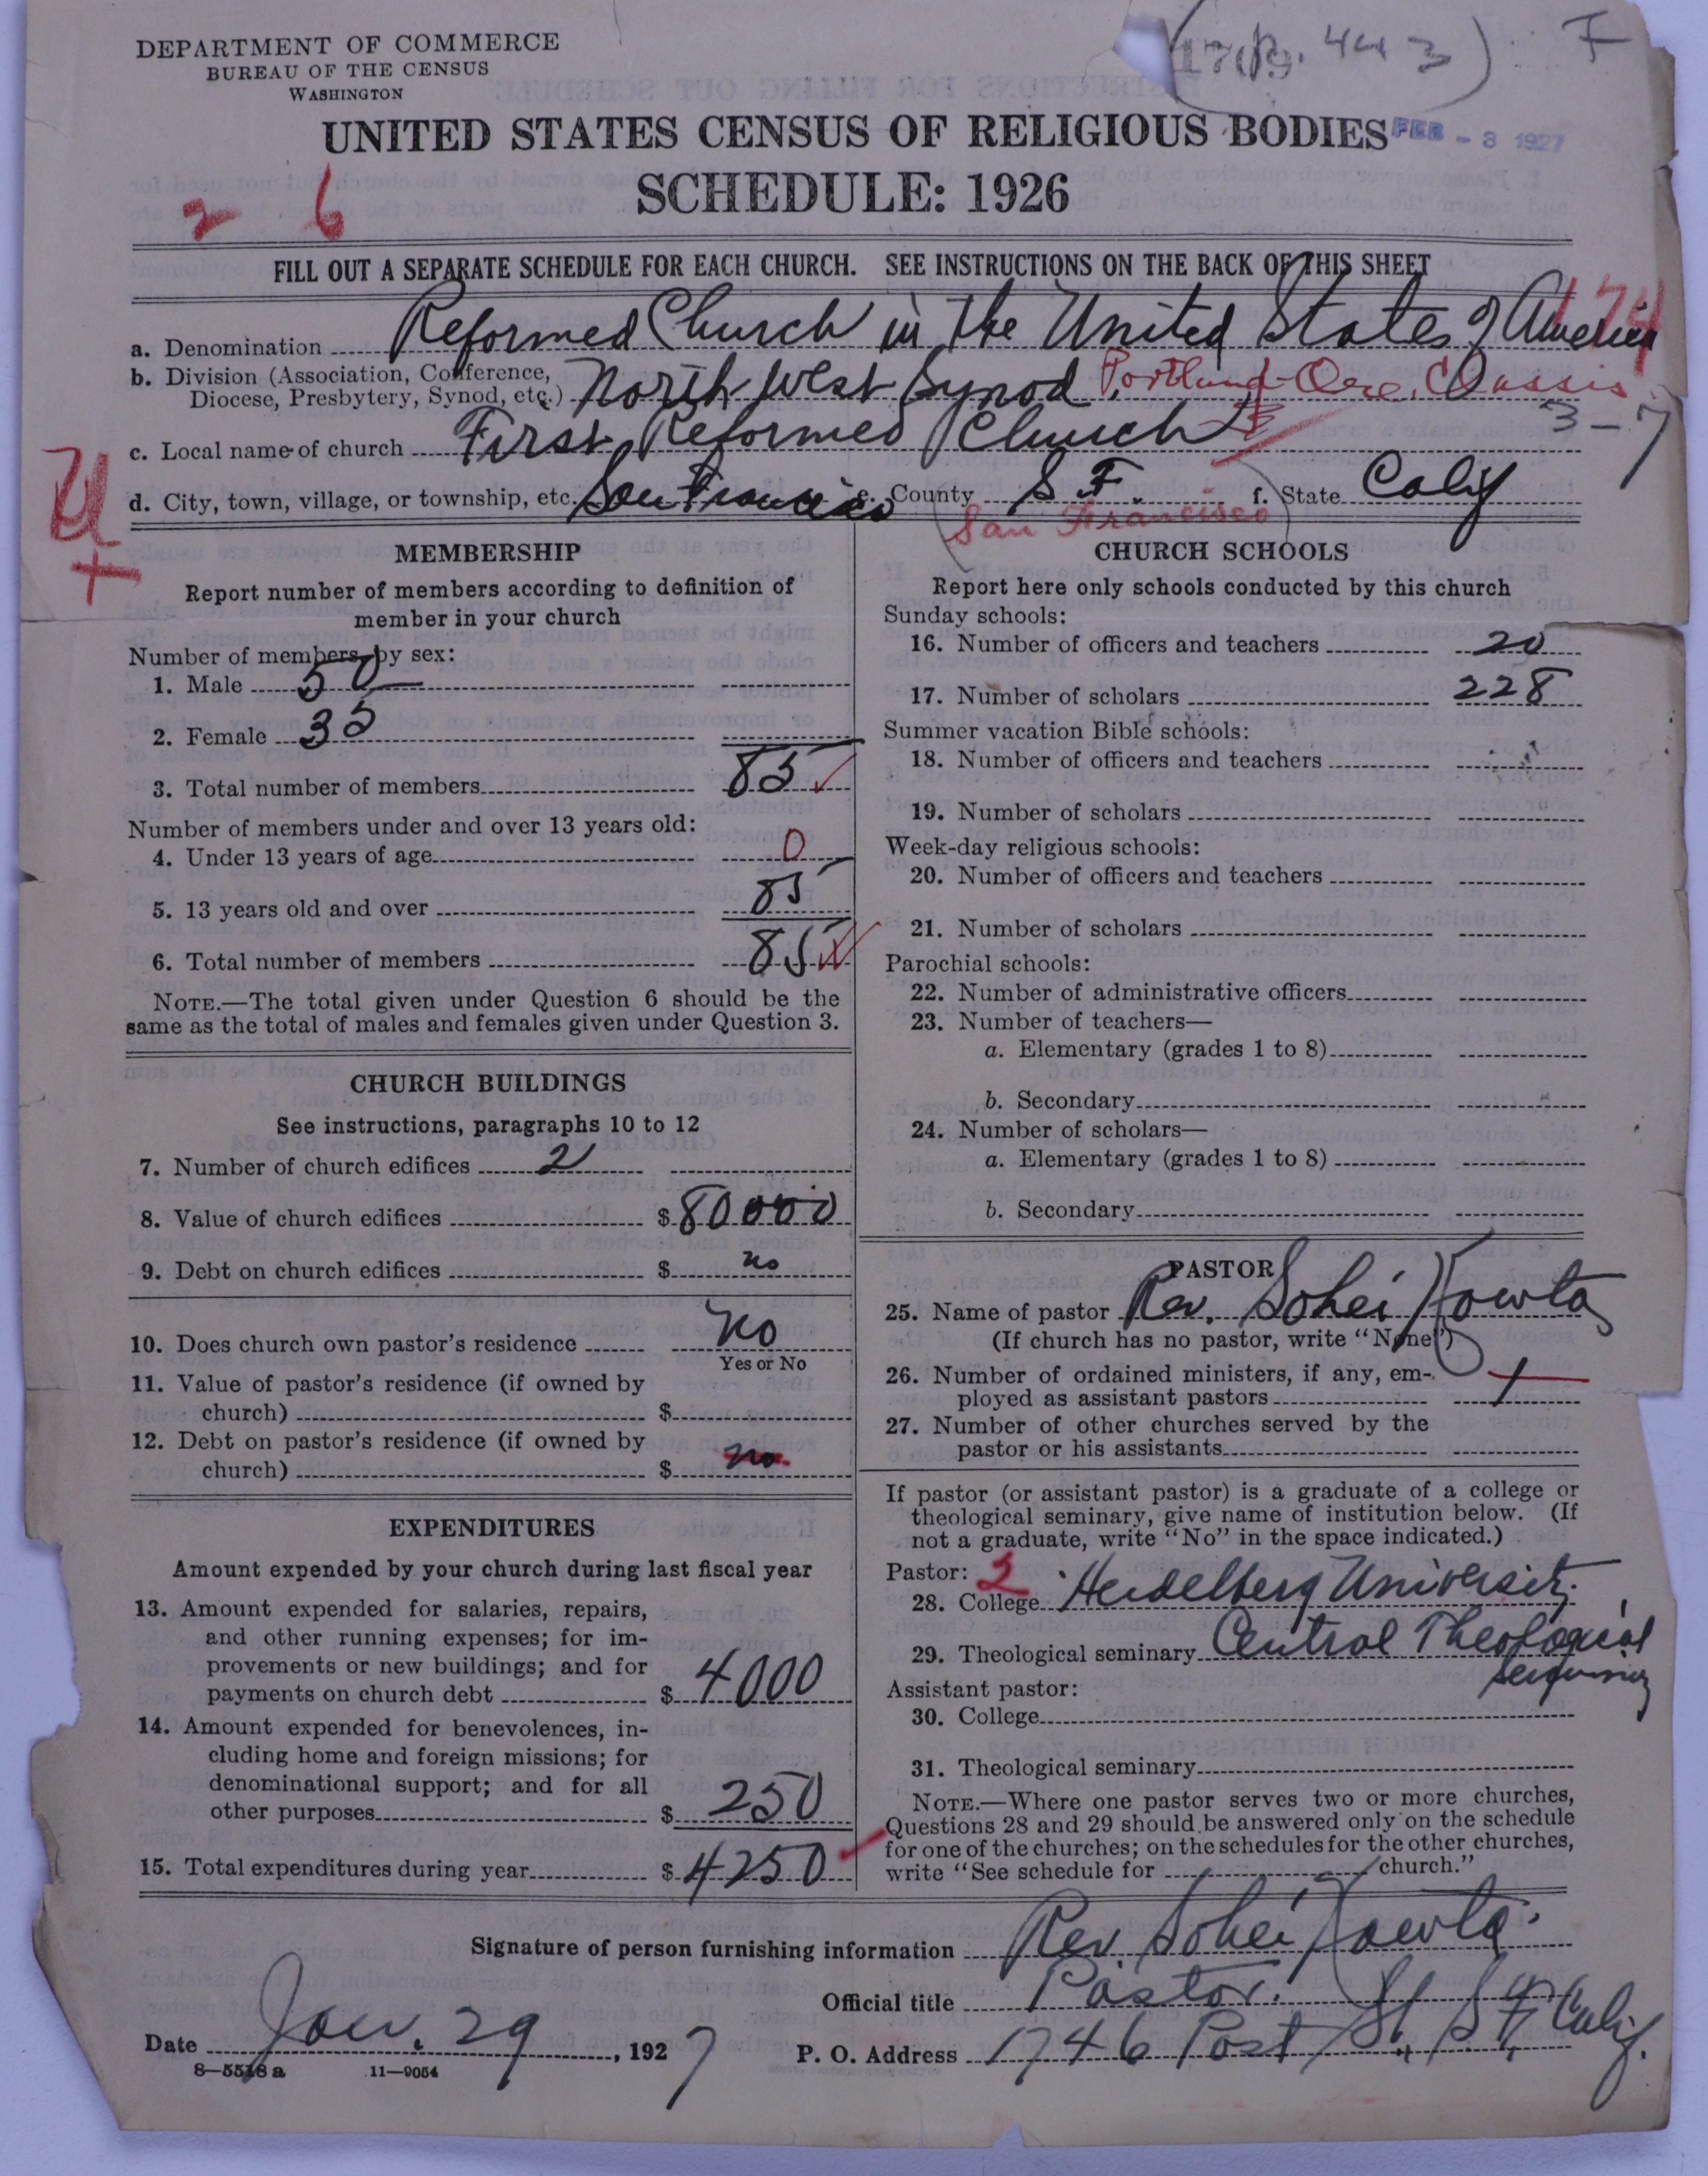 DEPARTMENT OF COMMERCE
BUREAU OF THE CENSUS
WASHINGTON
F
UNITED STATES CENSUS OF RELIGIOUS BODIES
FEB - 3 1927
SCHEDULE: 1926
2 6
FILL OUT A SEPARATE SCHEDULE FOR EACH CHURCH. SEE INSTRUCTIONS ON THE BACK OF THIS SHEET
a. Denomination Reformed Church in the United States of America
b. Division (Association, Conference, Diocese, Presbytery, Synod, etc.) North West Synod Portland-Ore. Classis
3-7
c. Local name of church First Reformed Church
d. City, town, village, or township, etc. San Francisco e. County S. F. f. State Calif
San Francisco
MEMBERSHIP
Report number of members according to definition of
member in your church
Number of members by sex:
1. Male 50
2. Female 35
3. Total number of members 85
Number of members under and over 13 years old:
4. Under 13 years of age 0
5. 13 years old and over 85
6. Total number of members 85
NOTE.—The total given under Question 6 should be the
same as the total of males and females given under Question 3.
CHURCH BUILDINGS
See instructions, paragraphs 10 to 12
7. Number of church edifices 2
8. Value of church edifices $ 80000
9. Debt on church edifices $ no
10. Does church own pastor's residence No
Yes or No
11. Value of pastor's residence (if owned by
church) $
12. Debt on pastor's residence (if owned by
church) $ no
EXPENDITURES
Amount expended by your church during last fiscal year
13. Amount expended for salaries, repairs,
and other running expenses; for im-
provements or new buildings; and for
payments on church debt $ 4000
14. Amount expended for benevolences, in-
cluding home and foreign missions; for
denominational support; and for all
other purposes $ 250
15. Total expenditures during year $ 4250
CHURCH SCHOOLS
Report here only schools conducted by this church
Sunday schools:
16. Number of officers and teachers 20
17. Number of scholars 228
Summer vacation Bible schools:
18. Number of officers and teachers
19. Number of scholars
Week-day religious schools:
20. Number of officers and teachers
21. Number of scholars
Parochial schools:
22. Number of administrative officers
23. Number of teachers—
a. Elementary (grades 1 to 8)
b. Secondary
24. Number of scholars—
a. Elementary (grades 1 to 8)
b. Secondary
PASTOR
25. Name of pastor Rev. Sohei Kowta
(If church has no pastor, write "None")
26. Number of ordained ministers, if any, em-
ployed as assistant pastors 1
27. Number of other churches served by the
pastor or his assistants
If pastor (or assistant pastor) is a graduate of a college or
theological seminary, give name of institution below. (If
not a graduate, write "No" in the space indicated.)
Pastor: 2
28. College Heidelberg University.
29. Theological seminary Central Theological
Seminary
Assistant pastor:
30. College
31. Theological seminary
NOTE.—Where one pastor serves two or more churches,
Questions 28 and 29 should be answered only on the schedule
for one of the churches; on the schedules for the other churches,
write "See schedule for church."
Signature of person furnishing information Rev. Sohei Kowta.
Official title Pastor.
Date Jan. 29, 1927
P. O. Address 1746 Post St., S. F., Calif.
8—5518 a 11—9054